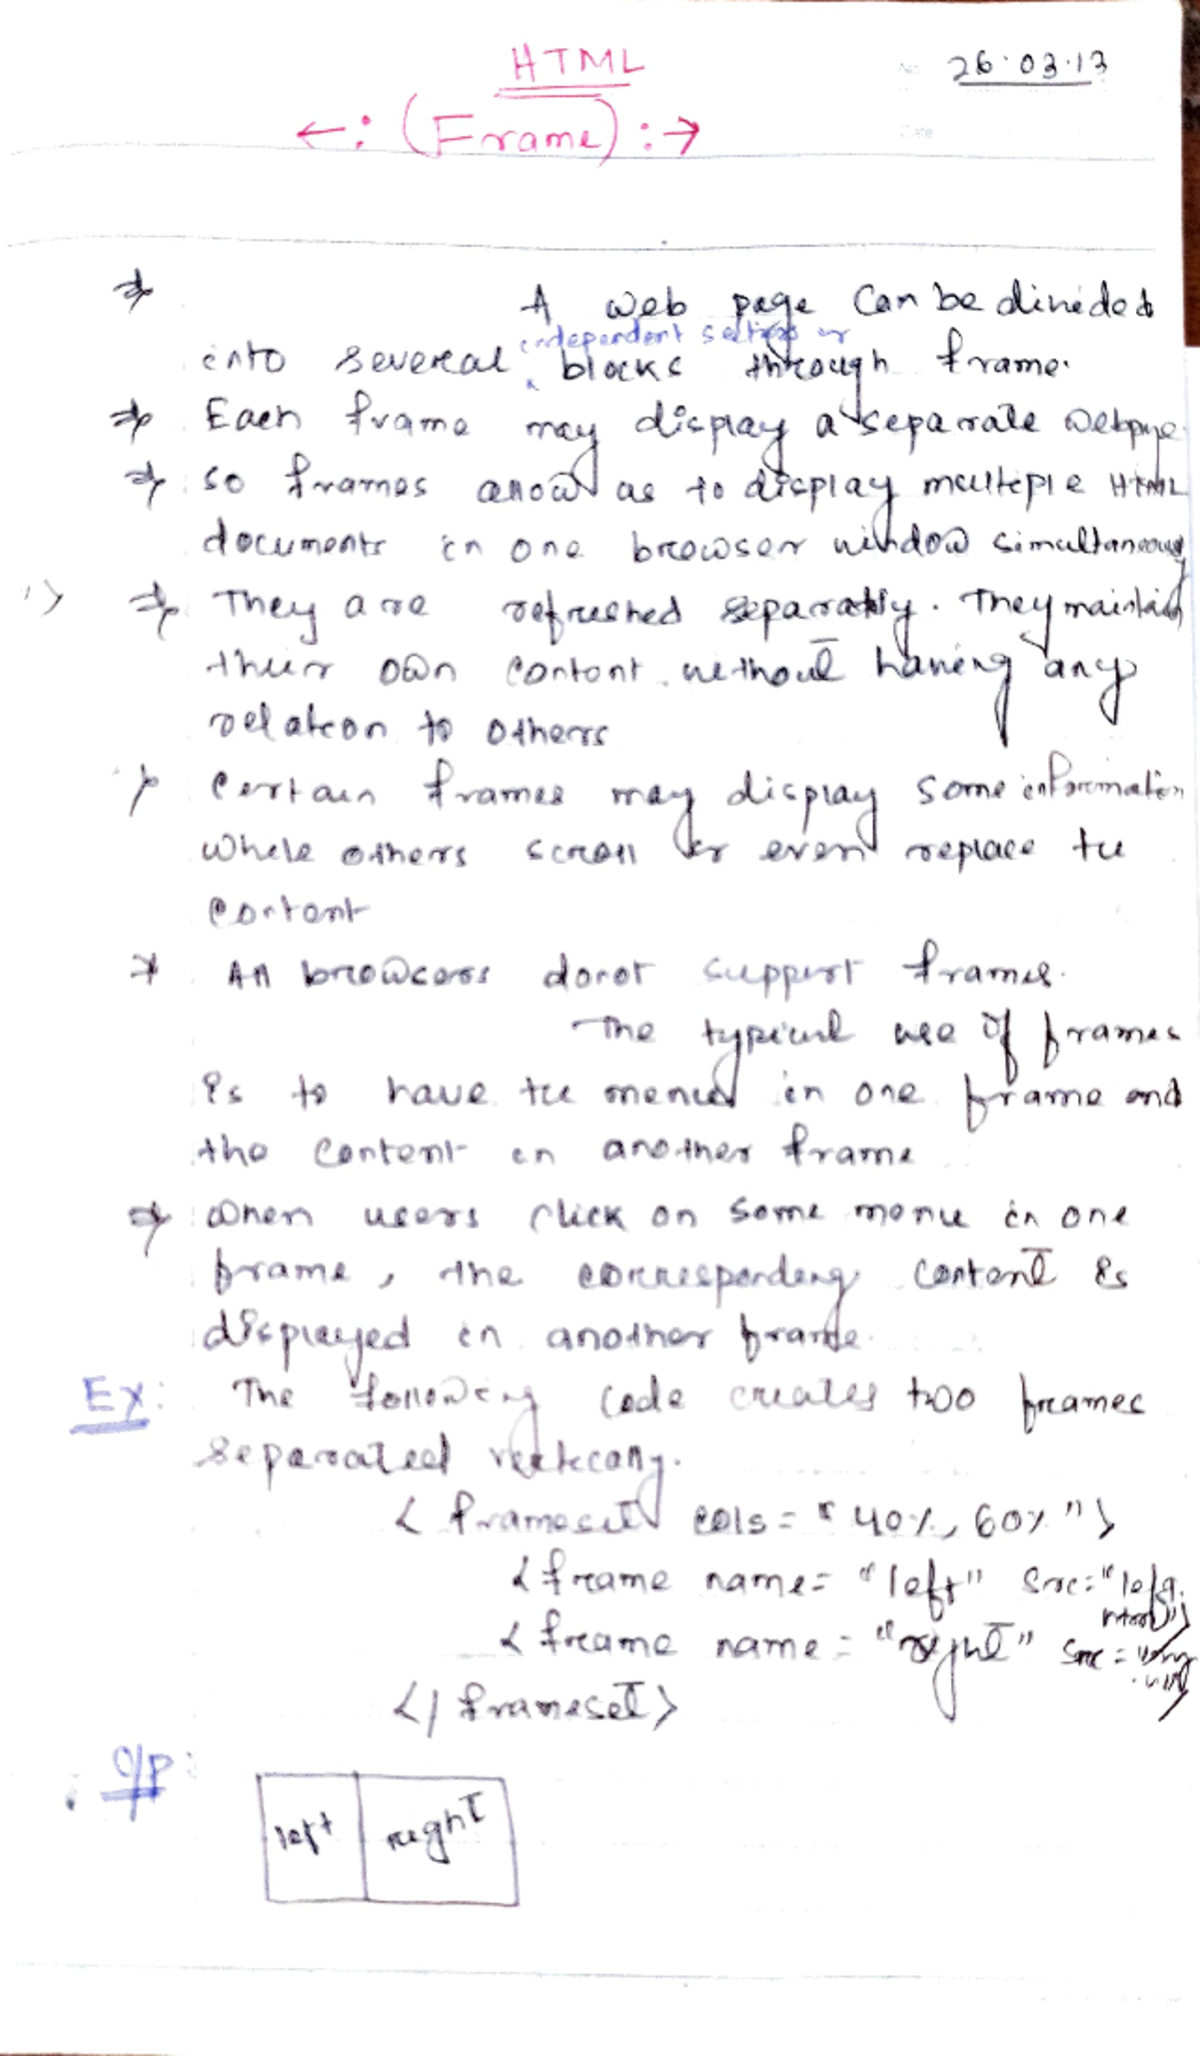 HTML
26.03.13
←: (Frame) :→
⇒ A web page can be divided
independent section or
into several blocks through frame.
⇒ Each frame may display a separate webpage
⇒ so frames allow us to display multiple HTML
documents in one browser window simultaneously
1) ⇒ They are refreshed separately. They maintain
their own content without having any
relation to others
Certain frames may display some information
while others scroll or even replace the
content
⇒ All browsers donot support frames.
The typical use of frames
is to have the menus in one frame and
the content in another frame
⇒ When users click on some menu in one
frame, the corresponding content is
displayed in another frame.
Ex: The following code creates two frames
separated vertically.
< frameset cols = "40%, 60%">
< frame name = "left" src = "left.
html">
< frame name = "right" src =
</ frameset>
O/P:
left right